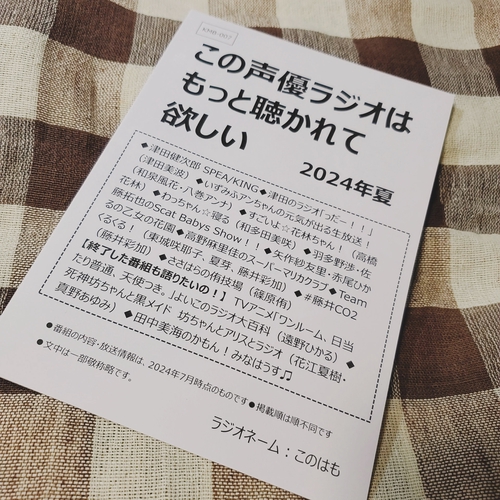 KMB-007
この声優ラジオは
もっと聴かれて
欲しい
2024年夏
◆津田健次郎 SPEA/KING◆津田のラジオ「っだー！！」
(津田美波) ◆いずみふアンちゃんの元気が出る生放送！
(和泉風花・八巻アンナ) ◆すごいよ☆花林ちゃん！(高橋
花林) ◆わっちゃん☆寝る (和多田美咲) ◆羽多野渉・佐
藤拓也のScat Babys Show！！◆矢作紗友里・赤尾ひか
るの乙女の花園◆高野麻里佳のスーパーマリカクラブ◆Team
くるくる！(東城咲耶子、夏芽、藤井彩加) ◆#藤井CO2
(藤井彩加) ◆ささはらの侑技場 (篠原侑)
【終了した番組も語りたいの！】TVアニメ「ワンルーム、日当
たり普通、天使つき。」よいこのラジオ大百科 (遠野ひかる) ◆
死神坊ちゃんと黒メイド 坊ちゃんとアリスとラジオ (花江夏樹・
真野あゆみ) ◆田中美海のかもん！みなはうす♫
●番組の内容・放送情報は、2024年7月時点のものです●掲載順は順不同です
●文中は一部敬称略です。
ラジオネーム：このはも